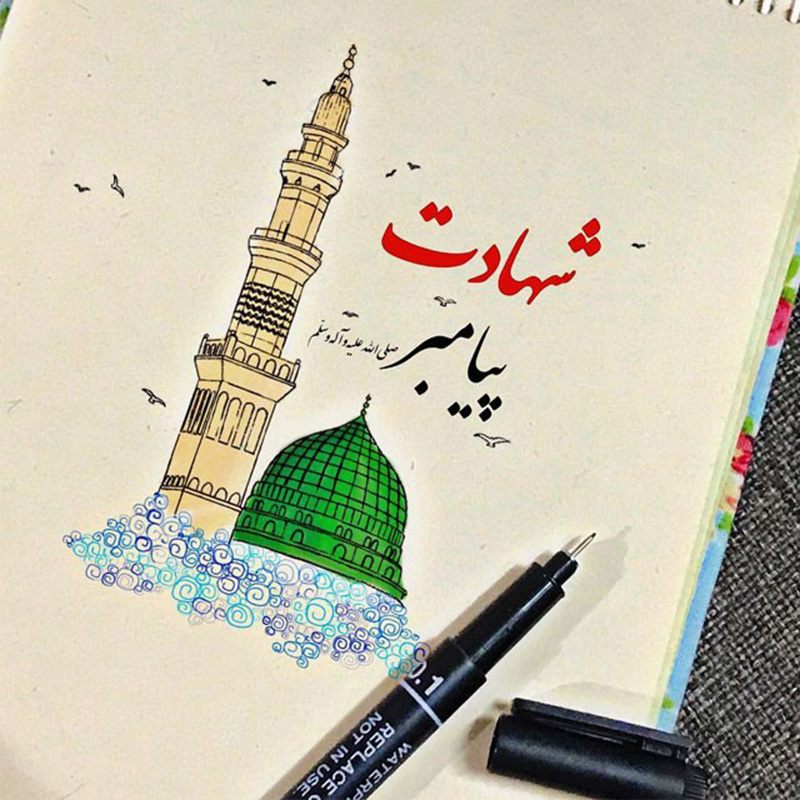 شهادت
پیامبر صلی الله علیه و آله و سلم
0.1
WATERP
REPLACE C
NOT IN USE